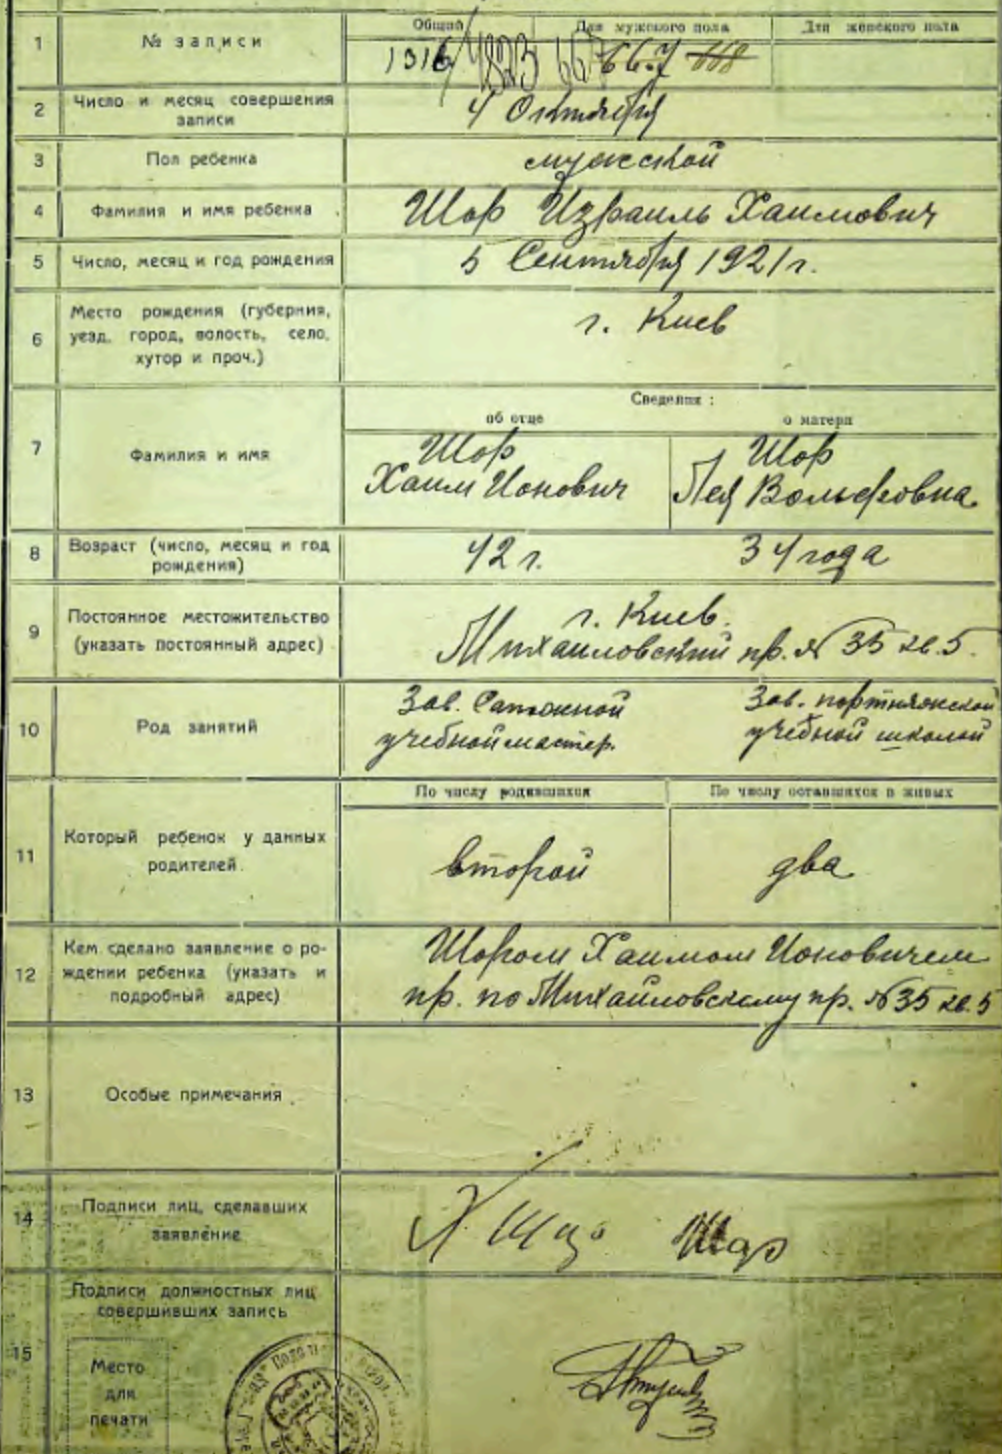 1 № записи Общий Для мужского пола Для женского пола
1316/4823 667 668
2 Число и месяц совершения
записи
4 Октября
3 Пол ребенка мужской
4 Фамилия и имя ребенка Шор Израиль Хаимович
5 Число, месяц и год рождения 5 Сентября 1921 г.
6 Место рождения (губерния,
уезд, город, волость, село,
хутор и проч.)
г. Киев
Сведения:
об отце о матери
7 Фамилия и имя
Шор
Хаим Ионович
Шор
Лея Вольфовна
8 Возраст (число, месяц и год
рождения)
42 г. 34 года
9 Постоянное местожительство
(указать постоянный адрес)
г. Киев.
Михайловский пр. № 35 кв. 5.
10 Род занятий
Зав. Сапожной
учебной мастер.
Зав. портняжской
учебной школой
По числу родившихся По числу оставшихся в живых
11 Который ребенок у данных
родителей.
второй два
12 Кем сделано заявление о ро-
ждении ребенка (указать и
подробный адрес)
Шором Хаимом Ионовичем
пр. по Михайловскому пр. № 35 кв. 5
13 Особые примечания
14 Подписи лиц, сделавших
заявление
Х. Шор
15 Подписи должностных лиц
совершивших запись
Место
для
печати